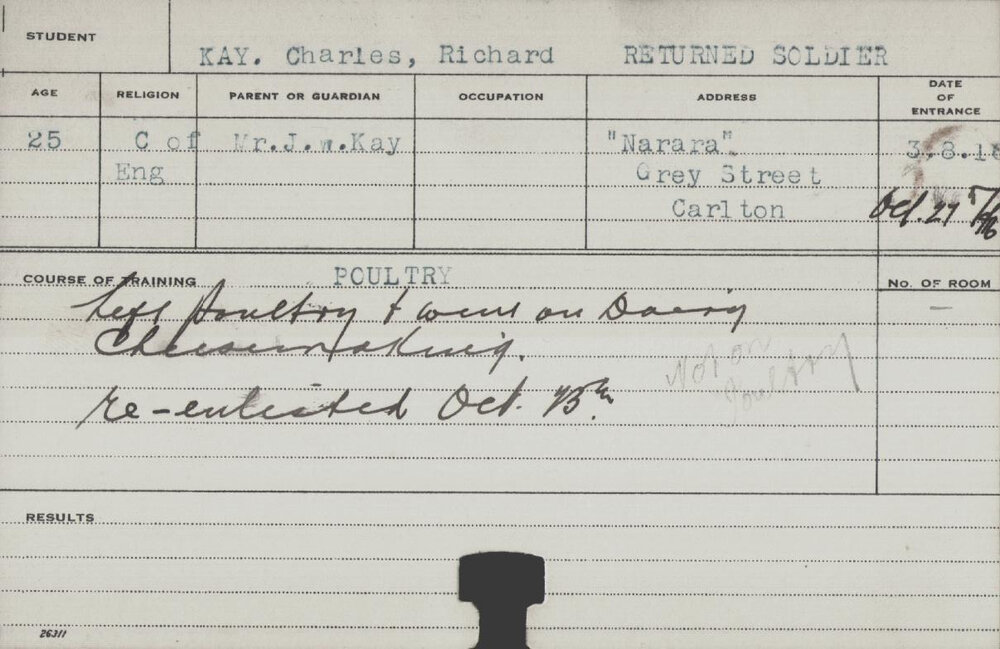 STUDENT
KAY. Charles, Richard RETURNED SOLDIER
AGE RELIGION PARENT OR GUARDIAN OCCUPATION ADDRESS DATE OF ENTRANCE
25 C of Mr.J.W.Kay "Narara" 3.8.18
Eng Grey Street
Carlton Oct. 27
COURSE OF TRAINING POULTRY No. OF ROOM
Left Poultry & went on Dairy –
Cheesemaking.
Not on Poultry
re-enlisted Oct.
RESULTS
26311